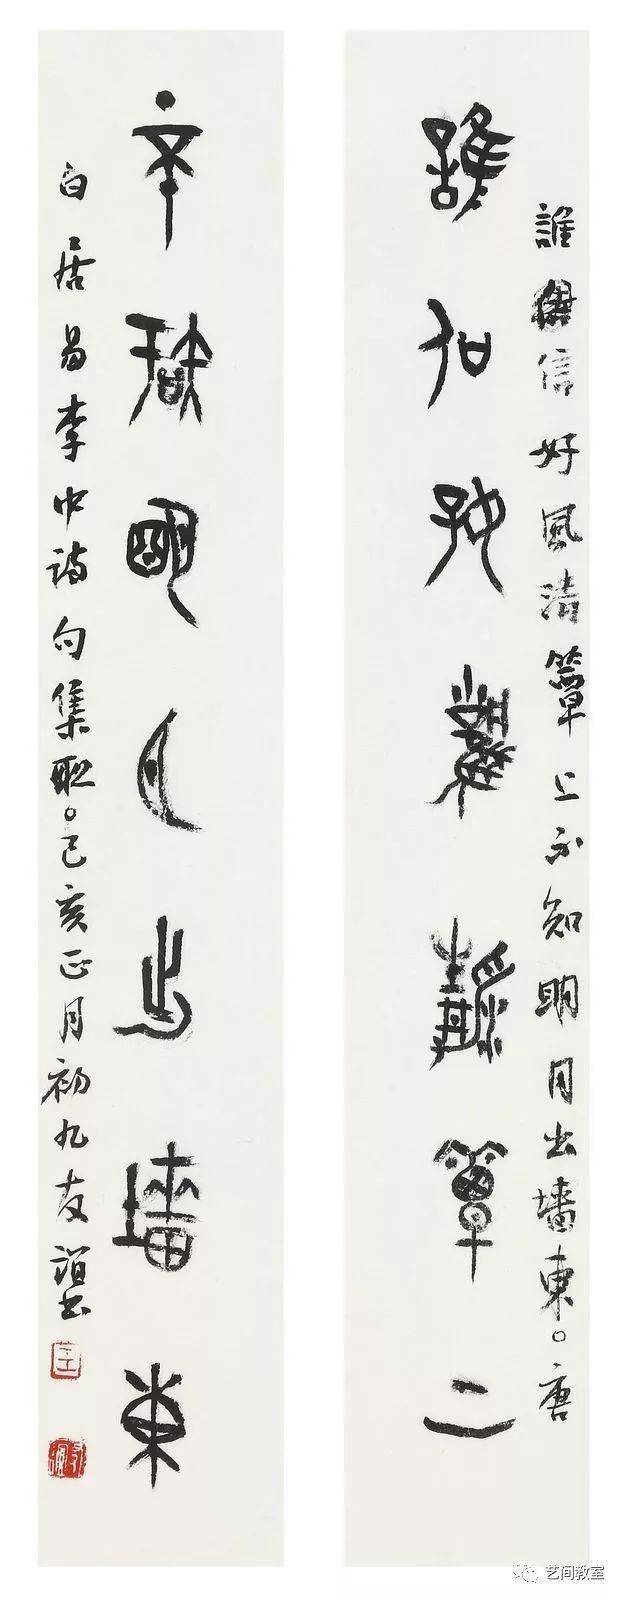 誰信好風清簟上不知明月出墻東。唐
誰信好風清簟上
不知明月出墻東
白居易李中詩句集聯。己亥正月初九友誼書
艺间教室